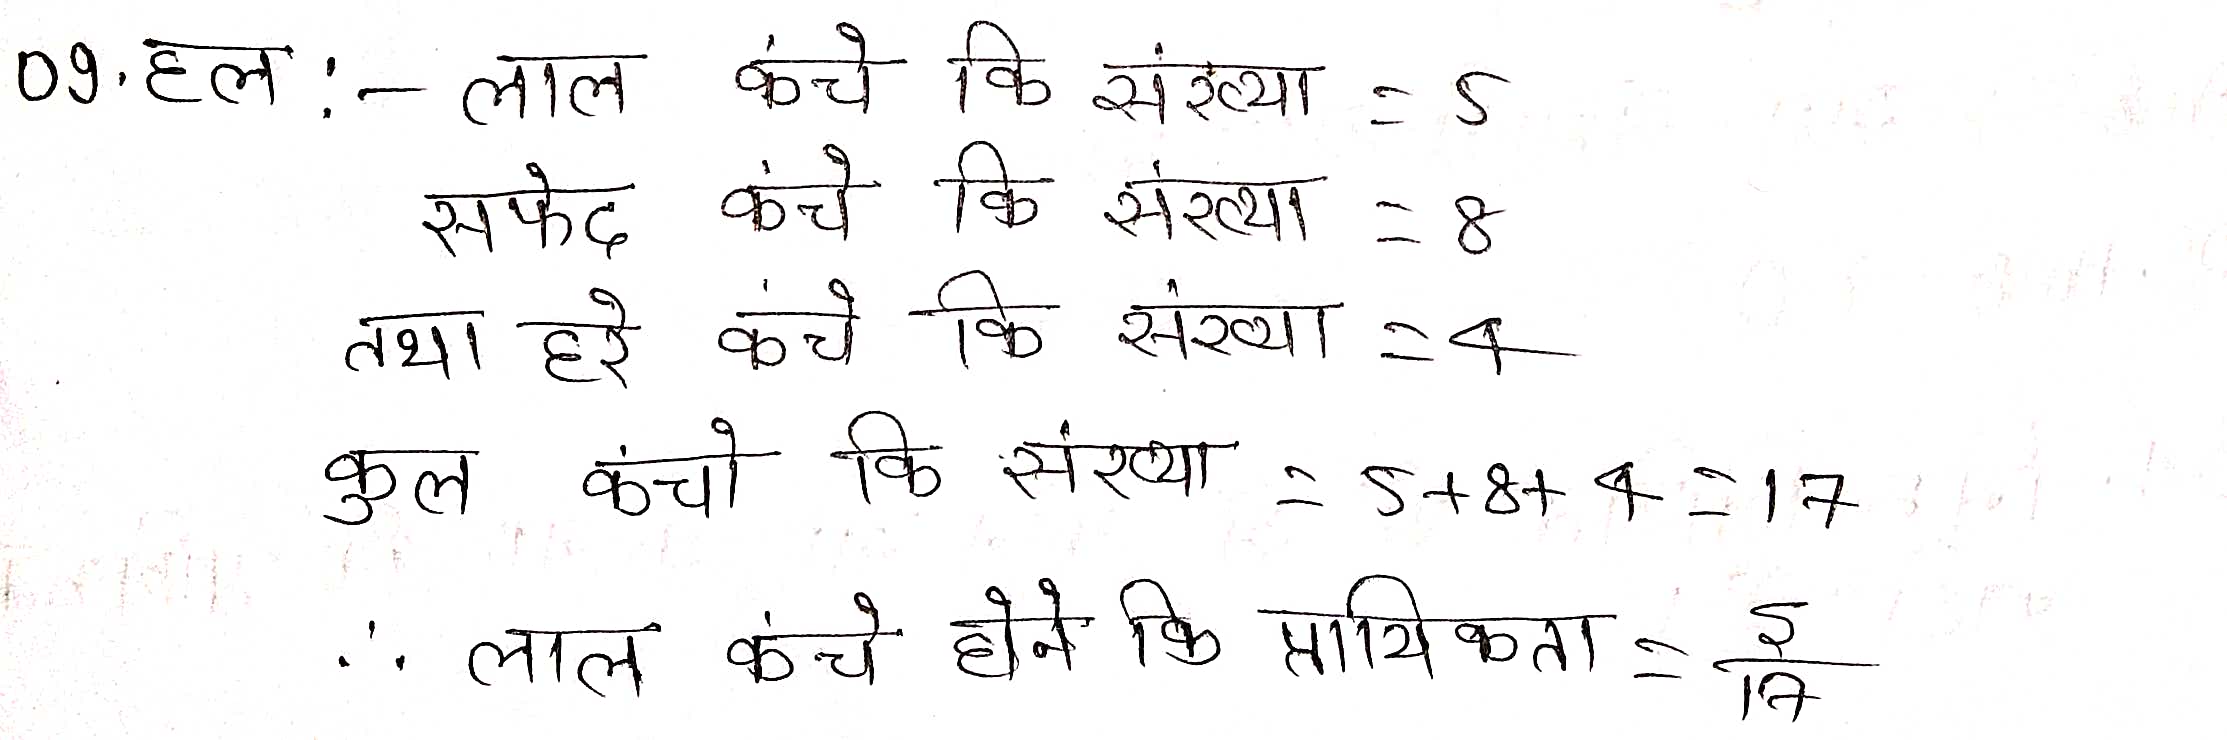 09. हल :- लाल कंचे कि संख्या = 5
सफेद कंचे कि संख्या = 8
तथा हरे कंचे कि संख्या = 4
कुल कंचो कि संख्या = 5+8+4 = 17
∴ लाल कंचे होने कि प्रायिकता = 5/17